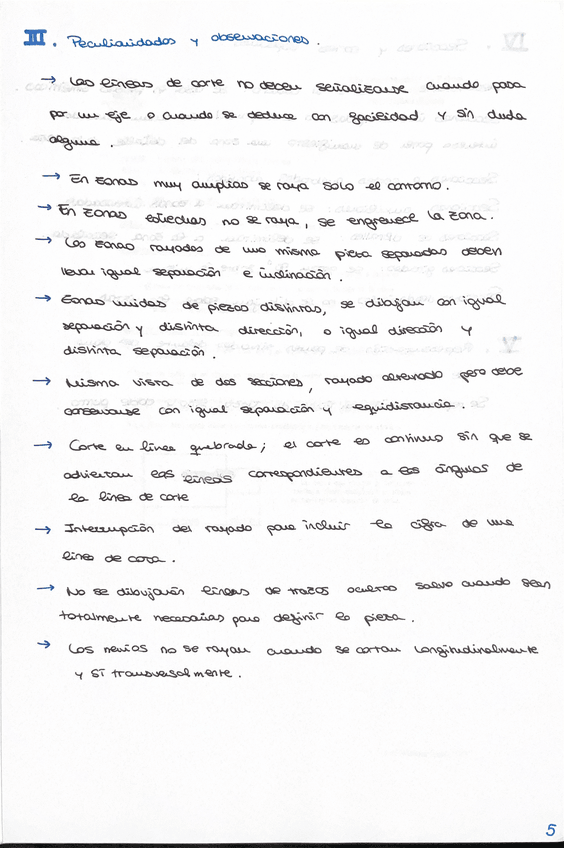 III. Peculiaridades y observaciones.
→ Las líneas de corte no deben señalizarse cuando pasa
por un eje o cuando se deduce con facilidad y sin duda
alguna.
→ En zonas muy amplias se raya solo el contorno.
→ En zonas estrechas no se raya, se engruece la zona.
→ Las zonas rayadas de una misma pieza separadas deben
llevar igual separación e inclinación.
→ Zonas unidas de piezas distintas, se dibujan con igual
separación y distinta dirección, o igual dirección y
distinta separación.
→ Misma vista de dos secciones, rayado alternado pero debe
conservarse con igual separación y equidistancia.
→ Corte en línea quebrada; el corte es continuo sin que se
adviertan las líneas correspondientes a los ángulos de
la línea de corte
→ Interrupción del rayado para incluir la cifra de una
línea de cota.
→ No se dibujarán líneas de trazos ocultos salvo cuando sean
totalmente necesarias para definir la pieza.
→ Los nervios no se rayan cuando se cortan longitudinalmente
y sí transversalmente.
5